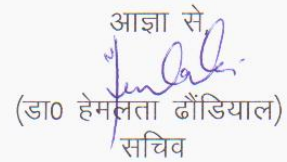 आज्ञा से,
(डा0 हेमलता ढौंडियाल)
सचिव